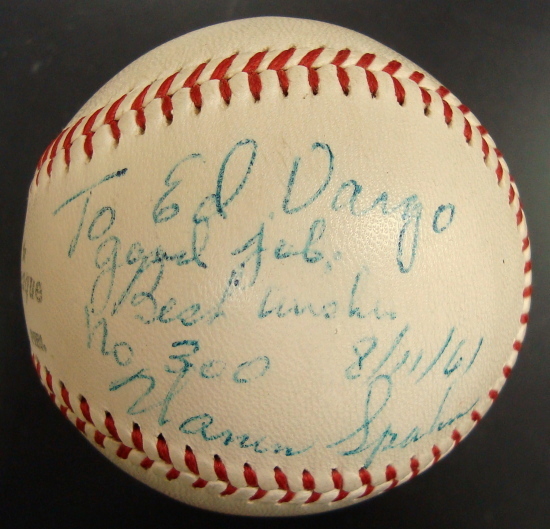 To Ed Vargo
good job.
Best wishes
No 300 8/11/61
Warren Spahn
que